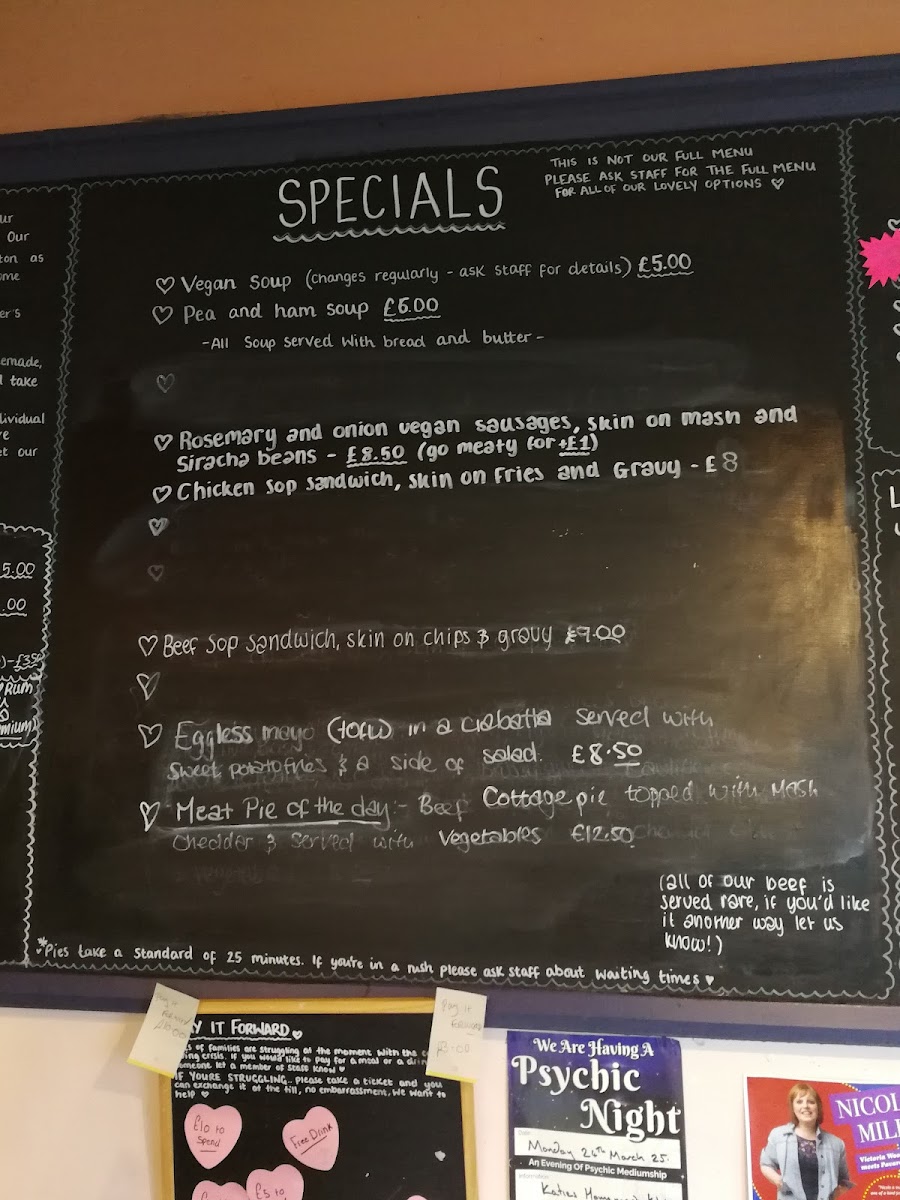 SPECIALS
THIS IS NOT OUR FULL MENU
PLEASE ASK STAFF FOR THE FULL MENU
FOR ALL OF OUR LOVELY OPTIONS ♡
♡ Vegan Soup (Changes regularly - ask staff for details) £5.00
♡ Pea and ham soup £6.00
-All Soup served with bread and butter-
♡
♡ Rosemary and onion vegan sausages, skin on mash and
Siracha beans - £8.50 (go meaty for +£1)
♡ Chicken Sop Sandwich, skin on Fries and Gravy - £8
♡
♡
♡ Beef Sop Sandwich, skin on chips & gravy £9.00
♡
♡ Eggless mayo (tofu) in a ciabatta served with
sweet potato fries & a side of salad. £8.50
♡ Meat Pie of the day:- Beef Cottage pie topped with Mash
chedder & served with vegetables £12.50
(all of our beef is
served rare, if you'd like
it another way let us
know!)
*Pies take a standard of 25 minutes. If you're in a rush please ask staff about waiting times ♥
ur
Our
ton as
ome
er's
emade,
take
dividual
re
et our
5.00
.00
)-£3.50
Rum
mium)
Pay it
Forward
£10.00
Pay it
Forward
£3.00
Y IT FORWARD ♥
s of families are struggling at the moment with the
ing crisis. If you would like to pay for a meal or a
omeone let a member of staff know ♥
IF YOURE STRUGGLING.. please take a ticket and you
can exchange it at the till, no embarrassment, we want to
help ♥
£10 to
Spend
Free Drink
£5 to
We Are Having A
Psychic
Night
Date:
Monday 24th March 25.
An Evening Of Psychic Mediumship
Information:
NICOL
MIL
Victoria Woo
meets Pever